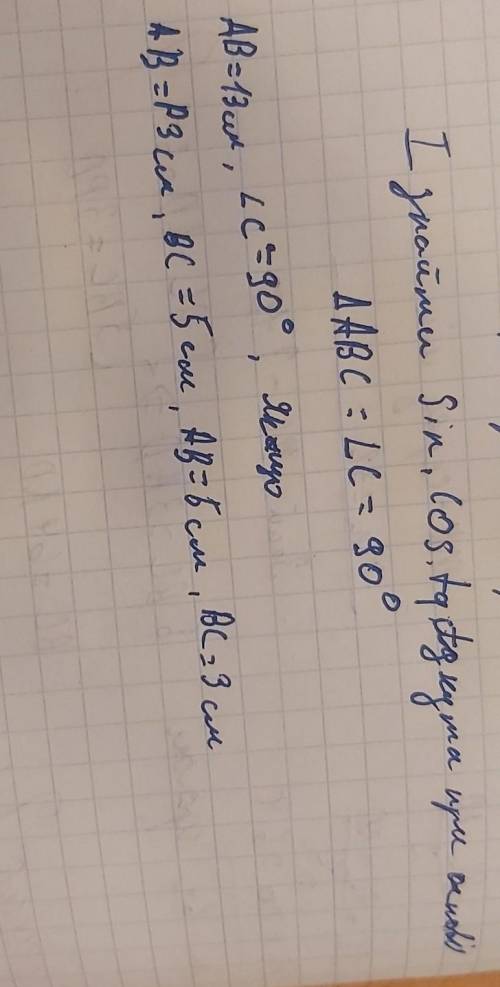 I знайти sin, cos, tg, ctg кута при основі
ΔABC = LC = 90°
AB=13см, LC=90°, якщо
AB=P3см, BC=5см, AB=5см, BC=3см